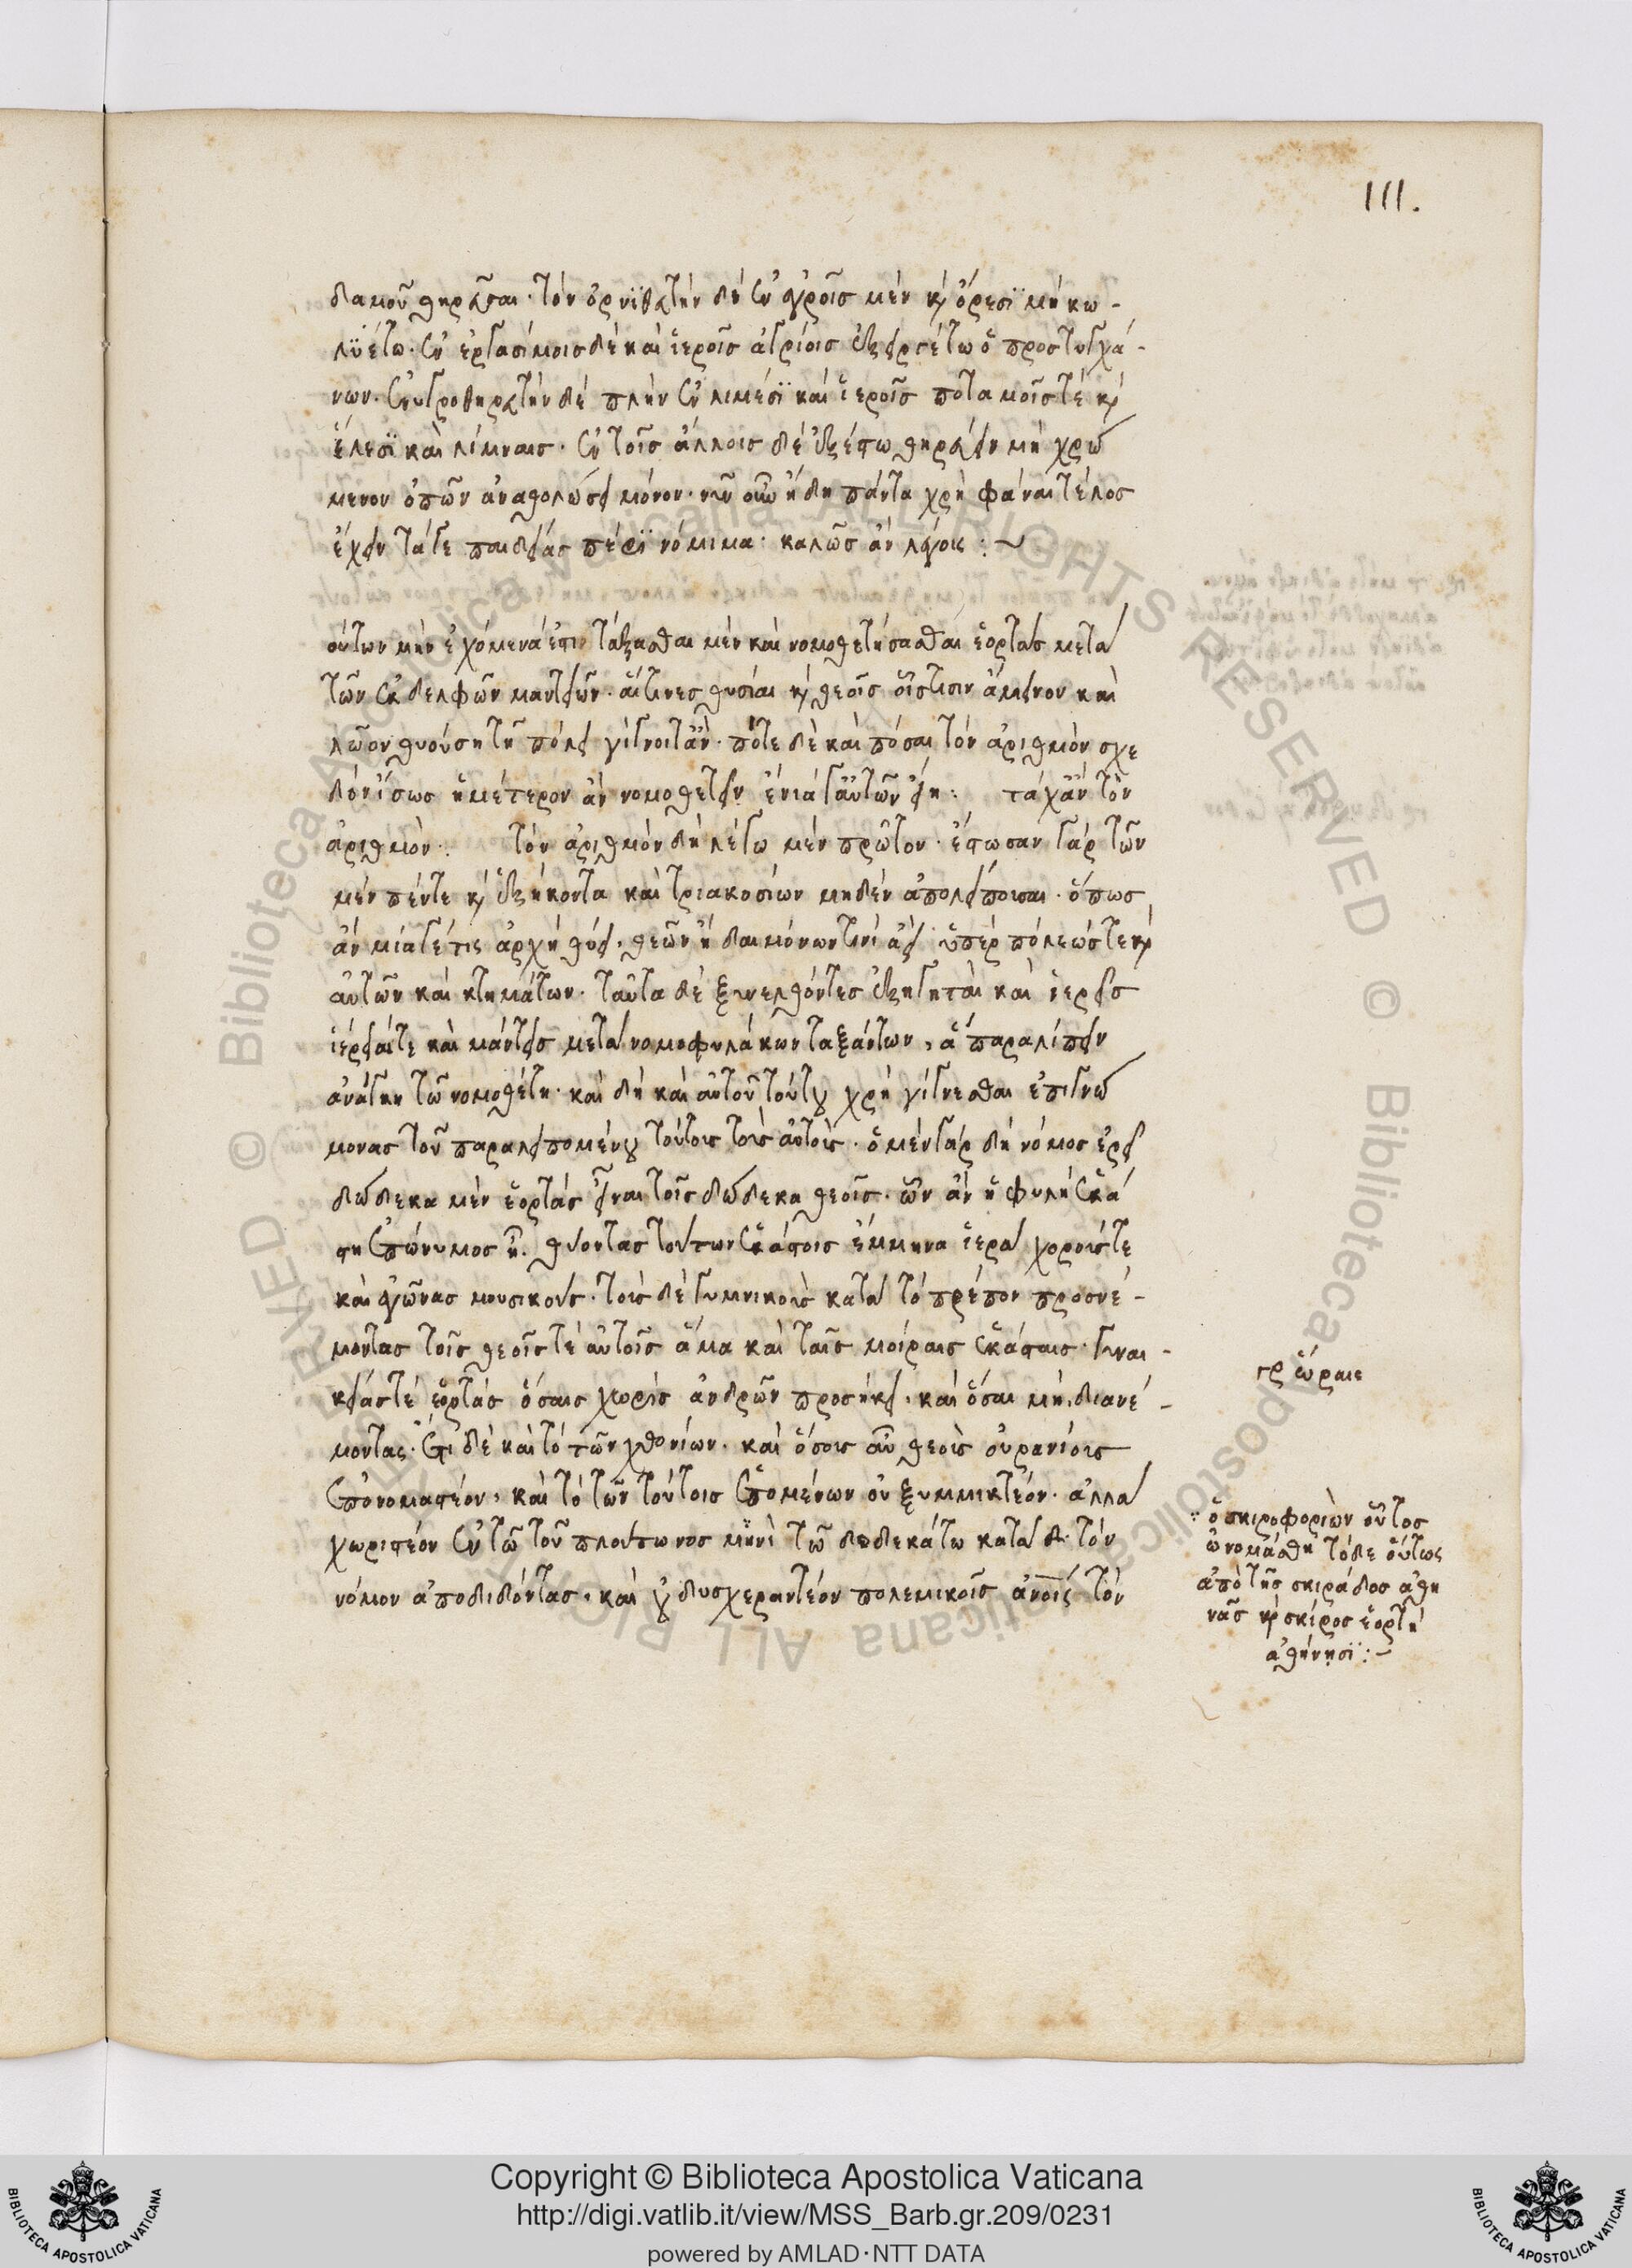 111.
δαμοῦ θηρᾶσαι· τὸν ὀρνϊθευτὴν δὲ ἐν ἀγροῖς μὲν κỳ ὄρεσϊ μὴ κω-
λϋέτω· ἐν ἐργασίμοις δὲ καὶ ἱεροῖς ἀγρίοις ἐξειργέτω ὁ προστυγχά-
νων· ἐνυγροθηρευτὴν δὲ πλὴν ἐν λιμέσϊ καὶ ἱεροῖς ποταμοῖς τέ κỳ
ἕλεσϊ καὶ λίμναις· ἐν τοῖς ἄλλοις δὲ ἐξέστω θηρεύειν μὴ χρώ
μενον ὀπῶν ἀναθολώσει μόνον· νῦν οὖν ἤδη πάντα χρὴ φάναι τέλος
ἔχειν τάγε παιδείας πέρϊ νόμιμα· καλῶς ἂν λέγοις :~
ούτων μὴν ἐχόμενά ἐστι τάξασθαι μὲν καὶ νομοθετήσασθαι ἑορτὰς μετὰ
τῶν ἐκ δελφῶν μαντειῶν· αἵτινες θυσίαι κỳ θεοῖς οἷστισιν ἄμεινον καὶ
λῶον θυούσῃ τῇ πόλει γίγνοιτ᾽ ἄν· πότε δὲ καὶ πόσαι τὸν ἀριθμὸν σχε
δὸν ἴσως ἡμέτερον ἂν νομοθετεῖν ἔνιά γ᾽ αὐτῶν εἴη: τάχ᾽ ἂν τὸν
ἀριθμόν: τὸν ἀριθμὸν δὴ λέγω μὲν πρῶτον· ἔστωσαν γὰρ τῶν
μὲν πέντε κỳ ἑξήκοντα καὶ τριακοσίων μηδὲν ἀπολείπουσαι· ὅπως
ἂν μία γέ τις ἀρχὴ θύει, θεῶν ἢ δαιμόνων τινὶ ἀεὶ ὑπὲρ πόλεώς τε κỳ
αὐτῶν καὶ κτημάτων· ταῦτα δὲ ξυνελθόντες ἐξηγηταὶ καὶ ἱερεῖς
ἱέρειαί τε καὶ μάντεις μετὰ νομοφυλάκων ταξάντων, ἃ παραλίπειν
ἀνάγκη τῶ νομοθέτη· καὶ δὴ καὶ αὐτοῦ τούτου χρὴ γίγνεσθαι ἐπιγνώ
μονας τοῦ παραλειπομένου τούτοις τοὺς αὐτούς· ὁ μὲν γὰρ δὴ νόμος ἐρεῖ
δώδεκα μὲν ἑορτὰς εἶναι τοῖς δώδεκα θεοῖς· ὧν ἂν ἡ φυλὴ ἑκά
στη ἐπώνυμος ἦ. θύοντας τούτων ἑκάστοις ἔμμηνα ἱερὰ χορούς τε
καὶ ἀγῶνας μουσικούς· τοὺς δὲ γυμνικοὺς κατὰ τὸ πρέπον προσνέ-
μοντας τοῖς θεοῖς τὲ αὐτοῖς ἅμα καὶ ταῖς μοίραις ἑκάσταις· γυναι-
κείας τὲ ἑορτὰς ὅσαις χωρὶς ἀνδρῶν προσήκει, καὶ ὅσαι μὴ, διανέ-
μοντας· ἔτι δὲ καὶ τὸ τῶν χθονίων, καὶ ὅσους αὖ θεοὺς οὐρανίους
ἐπονομαστέον, καὶ τὸ τῶν τούτοις ἑπομένων οὐ ξυμμικτέον· ἀλλὰ
χωριστέον ἐν τῶ τοῦ πλούτωνος μηνὶ τῶ δωδεκάτω κατὰ δὲ· τὸν
νόμον ἀποδιδόντας, καὶ οὐ δυσχεραντέον πολεμικοῖς ἀνοις τὸν
γρ ὥραις
ὁ σκιροφοριὼν οὗτος
ὠνομάσθη τόδε οὕτως
ἀπὸ τῆς σκιράδος ἀθη
νᾶς κỳ σκίρος ἑορτὴ
ἀθήνησϊ :~
Copyright © Biblioteca Apostolica Vaticana
http://digi.vatlib.it/view/MSS_Barb.gr.209/0231
powered by AMLAD·NTT DATA
BIBLIOTECA APOSTOLICA VATICANA
BIBLIOTECA APOSTOLICA VATICANA